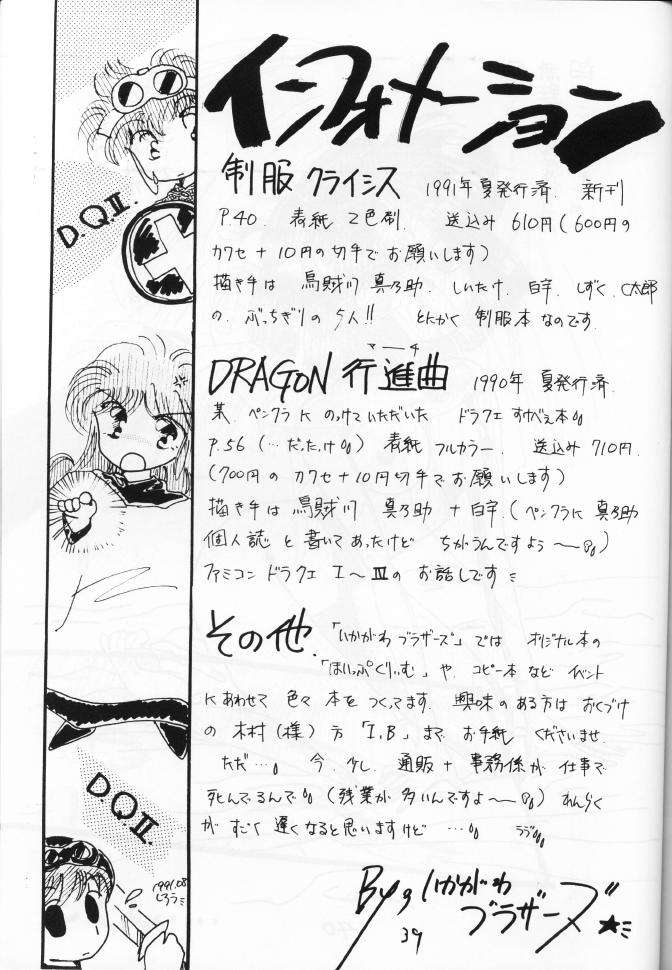 インフォメーション
制服 クライシス 1991年 夏発行済. 新刊
P.40. 表紙 2色刷. 送込み 610円(600円の
カワセ + 10円の切手で お願いします)
描き手は 烏賊川 真乃助. しいたけ. 白宇. しずく. C太郎
の. ぶっちぎりの 5人!! とにかく 制服本 なのです.
マーチ
DRAGON 行進曲 1990年 夏発行済.
某. ペンクラに のっけていただいた ドラクエ すけべえ本
P.56 (…だったけ) 表紙 フルカラー. 送込み 710円.
(700円の カワセ + 10円切手で お願いします)
描き手は 烏賊川 真乃助 + 白宇. (ペンクラに 真乃助
個人誌 と 書いてあったけど ちがうんですよう〜)
ファミコン ドラクエ I〜Ⅳの お話しです
その他. 「いかがわ ブラザーズ」では オリジナル本の
「ほいっぷくりぃむ」や. コピー本 など イベント
にあわせて 色々 本を つくってます. 興味の ある方は おくづけ
の 木村(様)方 「I.B」まで お手紙 くださいませ.
ただ…. 今. 少し. 通販 + 事務係が 仕事で
死んでるんで (残業が 多いんですよ〜) れんらく
が すごく 遅くなると思いますけど …
By いかがわ
ブラザーズ ★
39
D.Q.Ⅱ.
D.Q.Ⅱ.
1991.08
しろう